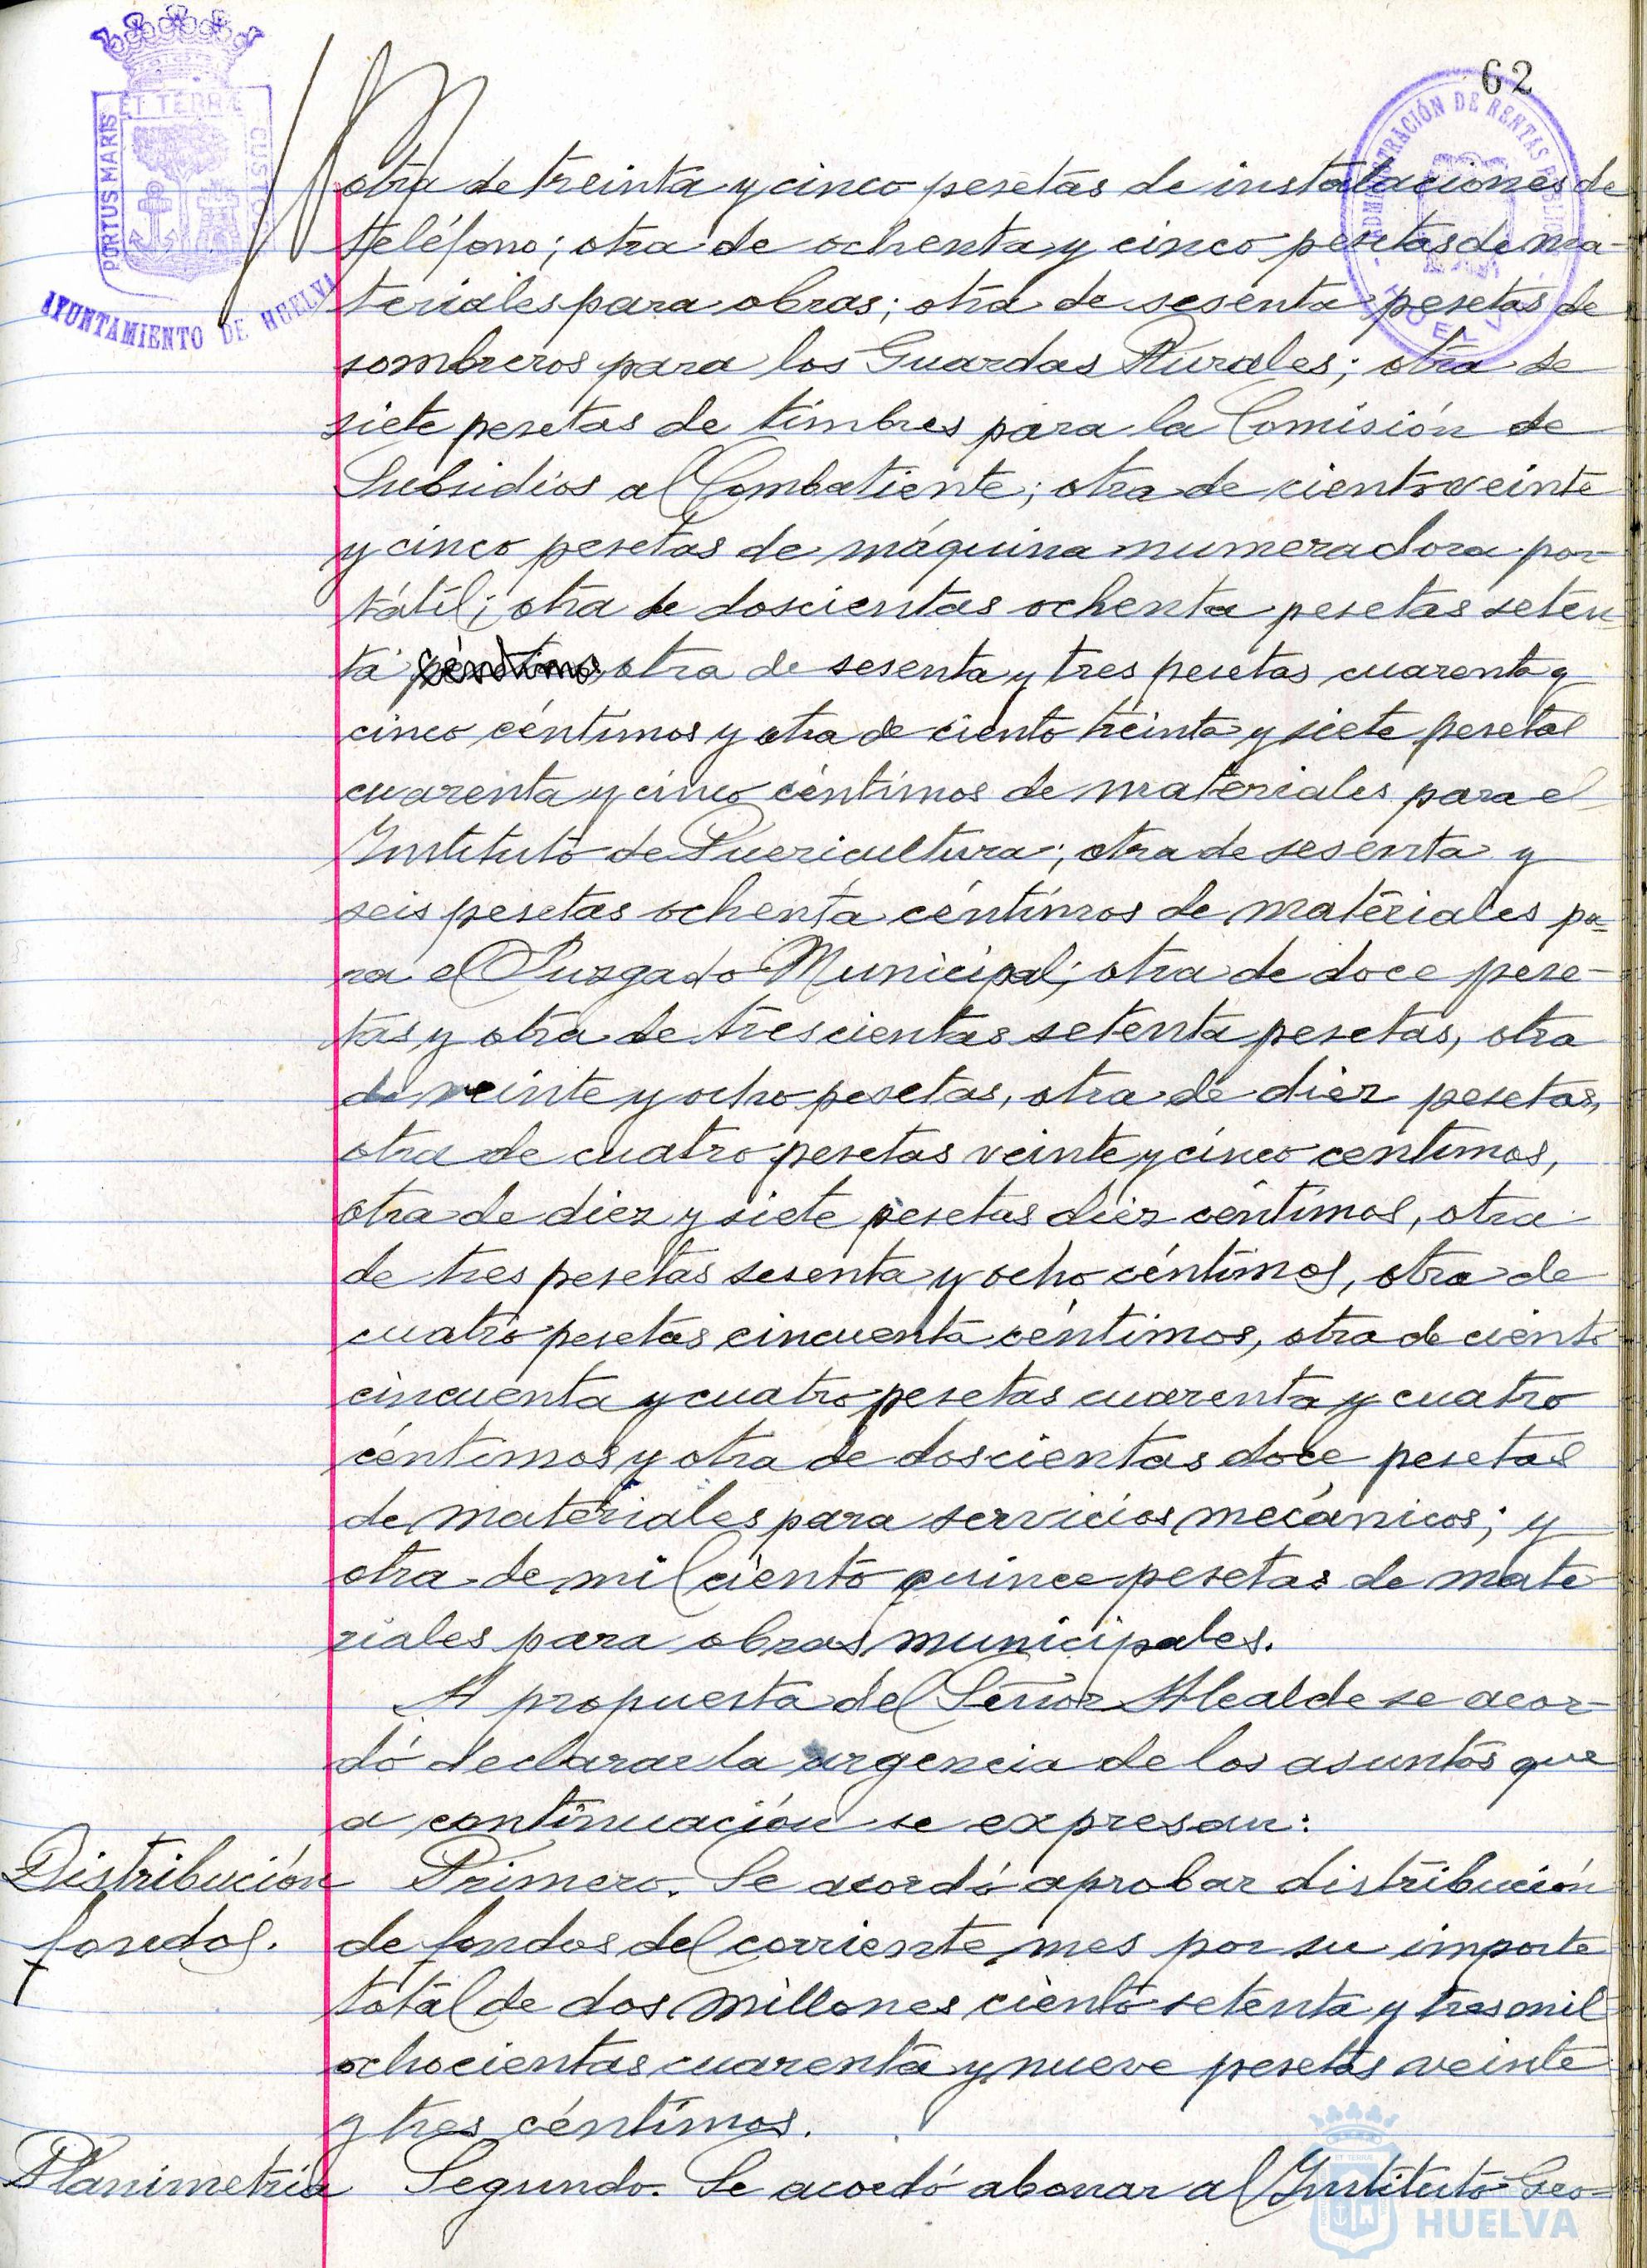 62
PORTUS MARIS
ET TERRÆ
CUSTOD
AYUNTAMIENTO DE HUELVA
ADMINISTRACIÓN DE RENTAS PÚBLICAS
HUELVA
otra de treinta y cinco pesetas de instalaciones de
teléfono; otra de ochenta y cinco pesetas de ma-
teriales para obras; otra de sesenta pesetas de
sombreros para los Guardas Rurales; otra de
siete pesetas de timbres para la Comisión de
Subsidios al Combatiente; otra de ciento veinte
y cinco pesetas de máquina numeradora por-
tátil; otra de doscientas ochenta pesetas seten-
ta céntimos otra de sesenta y tres pesetas cuarenta y
cinco céntimos y otra de ciento treinta y siete pesetas
cuarenta y cinco céntimos de materiales para el
Instituto de Puericultura; otra de sesenta y
seis pesetas ochenta céntimos de materiales pa-
ra el Juzgado Municipal; otra de doce pese-
tas y otra de trescientas setenta pesetas, otra
de veinte y ocho pesetas, otra de diez pesetas,
otra de cuatro pesetas veinte y cinco centimos,
otra de diez y siete pesetas diez céntimos, otra
de tres pesetas sesenta y ocho céntimos, otra de
cuatro pesetas cincuenta céntimos, otra de ciento
cincuenta y cuatro pesetas cuarenta y cuatro
céntimos y otra de doscientas doce pesetas
de materiales para servicios mecánicos; y
otra de mil ciento quince pesetas de mate-
riales para obras municipales.
A propuesta del Señor Alcalde se acor-
dó declarar la urgencia de los asuntos que
a continuación se expresan:
Distribución
fondos.
Primero. Se acordó aprobar distribución
de fondos del corriente mes por su importe
total de dos millones ciento setenta y tres mil
ochocientas cuarenta y nueve pesetas veinte
y tres céntimos.
Planimetría
Segundo. Se acordó abonar al Instituto Geo-
HUELVA